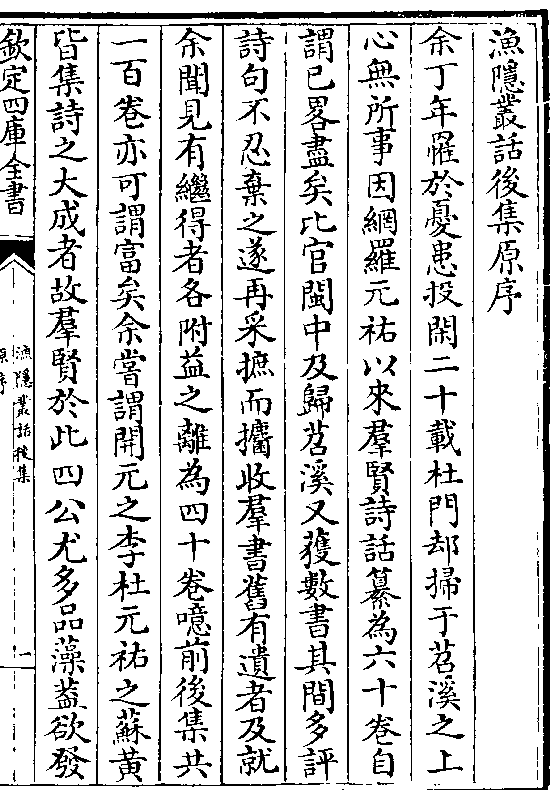 漁隱叢話後集原序
余丁年罹於憂患投閑二十載杜門却掃于苕溪之上
心無所事因網羅元祐以來羣賢詩話纂為六十卷自
謂已畧盡矣比官閩中及歸苕溪又獲數書其間多評
詩句不忍棄之遂再采摭而攟收羣書舊有遺者及就
余聞見有繼得者各附益之離為四十卷噫前後集共
一百卷亦可謂富矣余嘗謂開元之李杜元祐之蘇黃
皆集詩之大成者故羣賢於此四公尤多品藻葢欲發
欽定四庫全書
漁隱叢話後集
原序
一